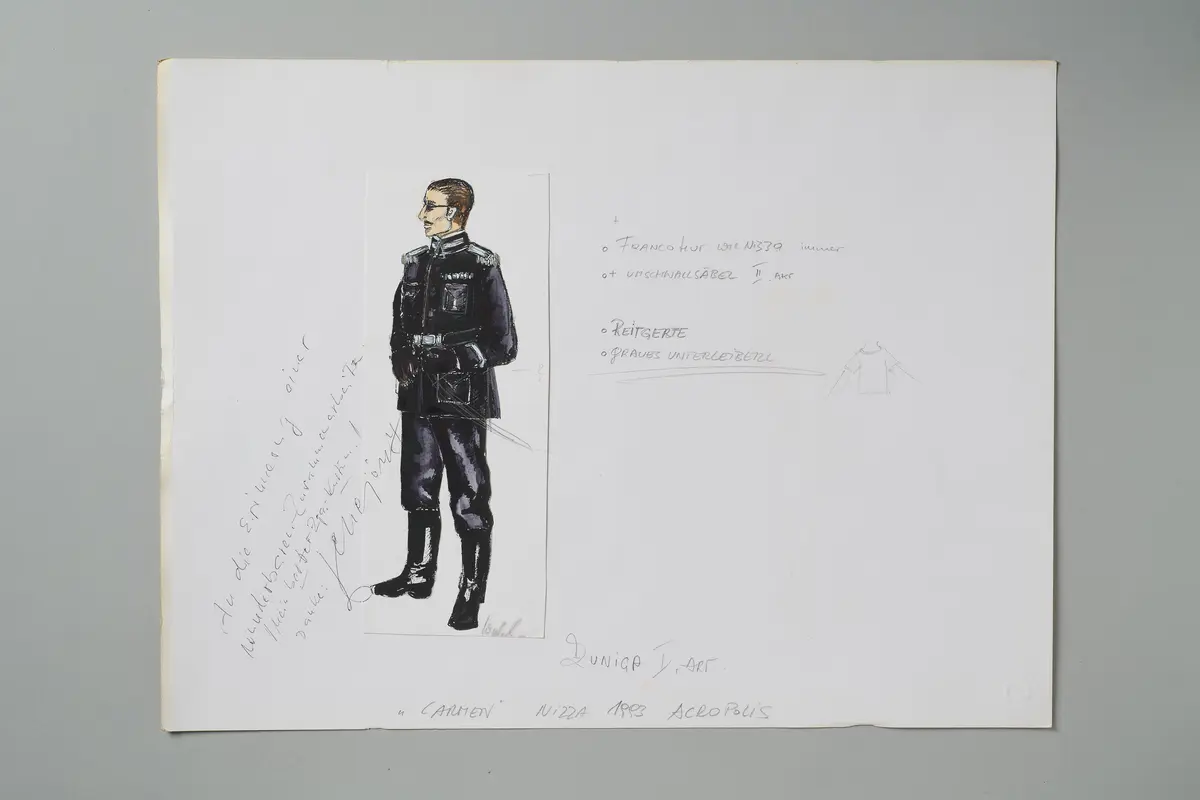 +
o FRANCOHUT WIE NIZZA immer
o + UMSCHNALLSÄBEL II. AKT
o REITGERTE
o GRAUES UNTERLEIBERL
An die Erinnerung einer
wunderbaren Zusammenarbeit
Mein
Danke!
ZUNIGA I. AKT.
„CARMEN" NIZZA 1993 ACROPOLIS